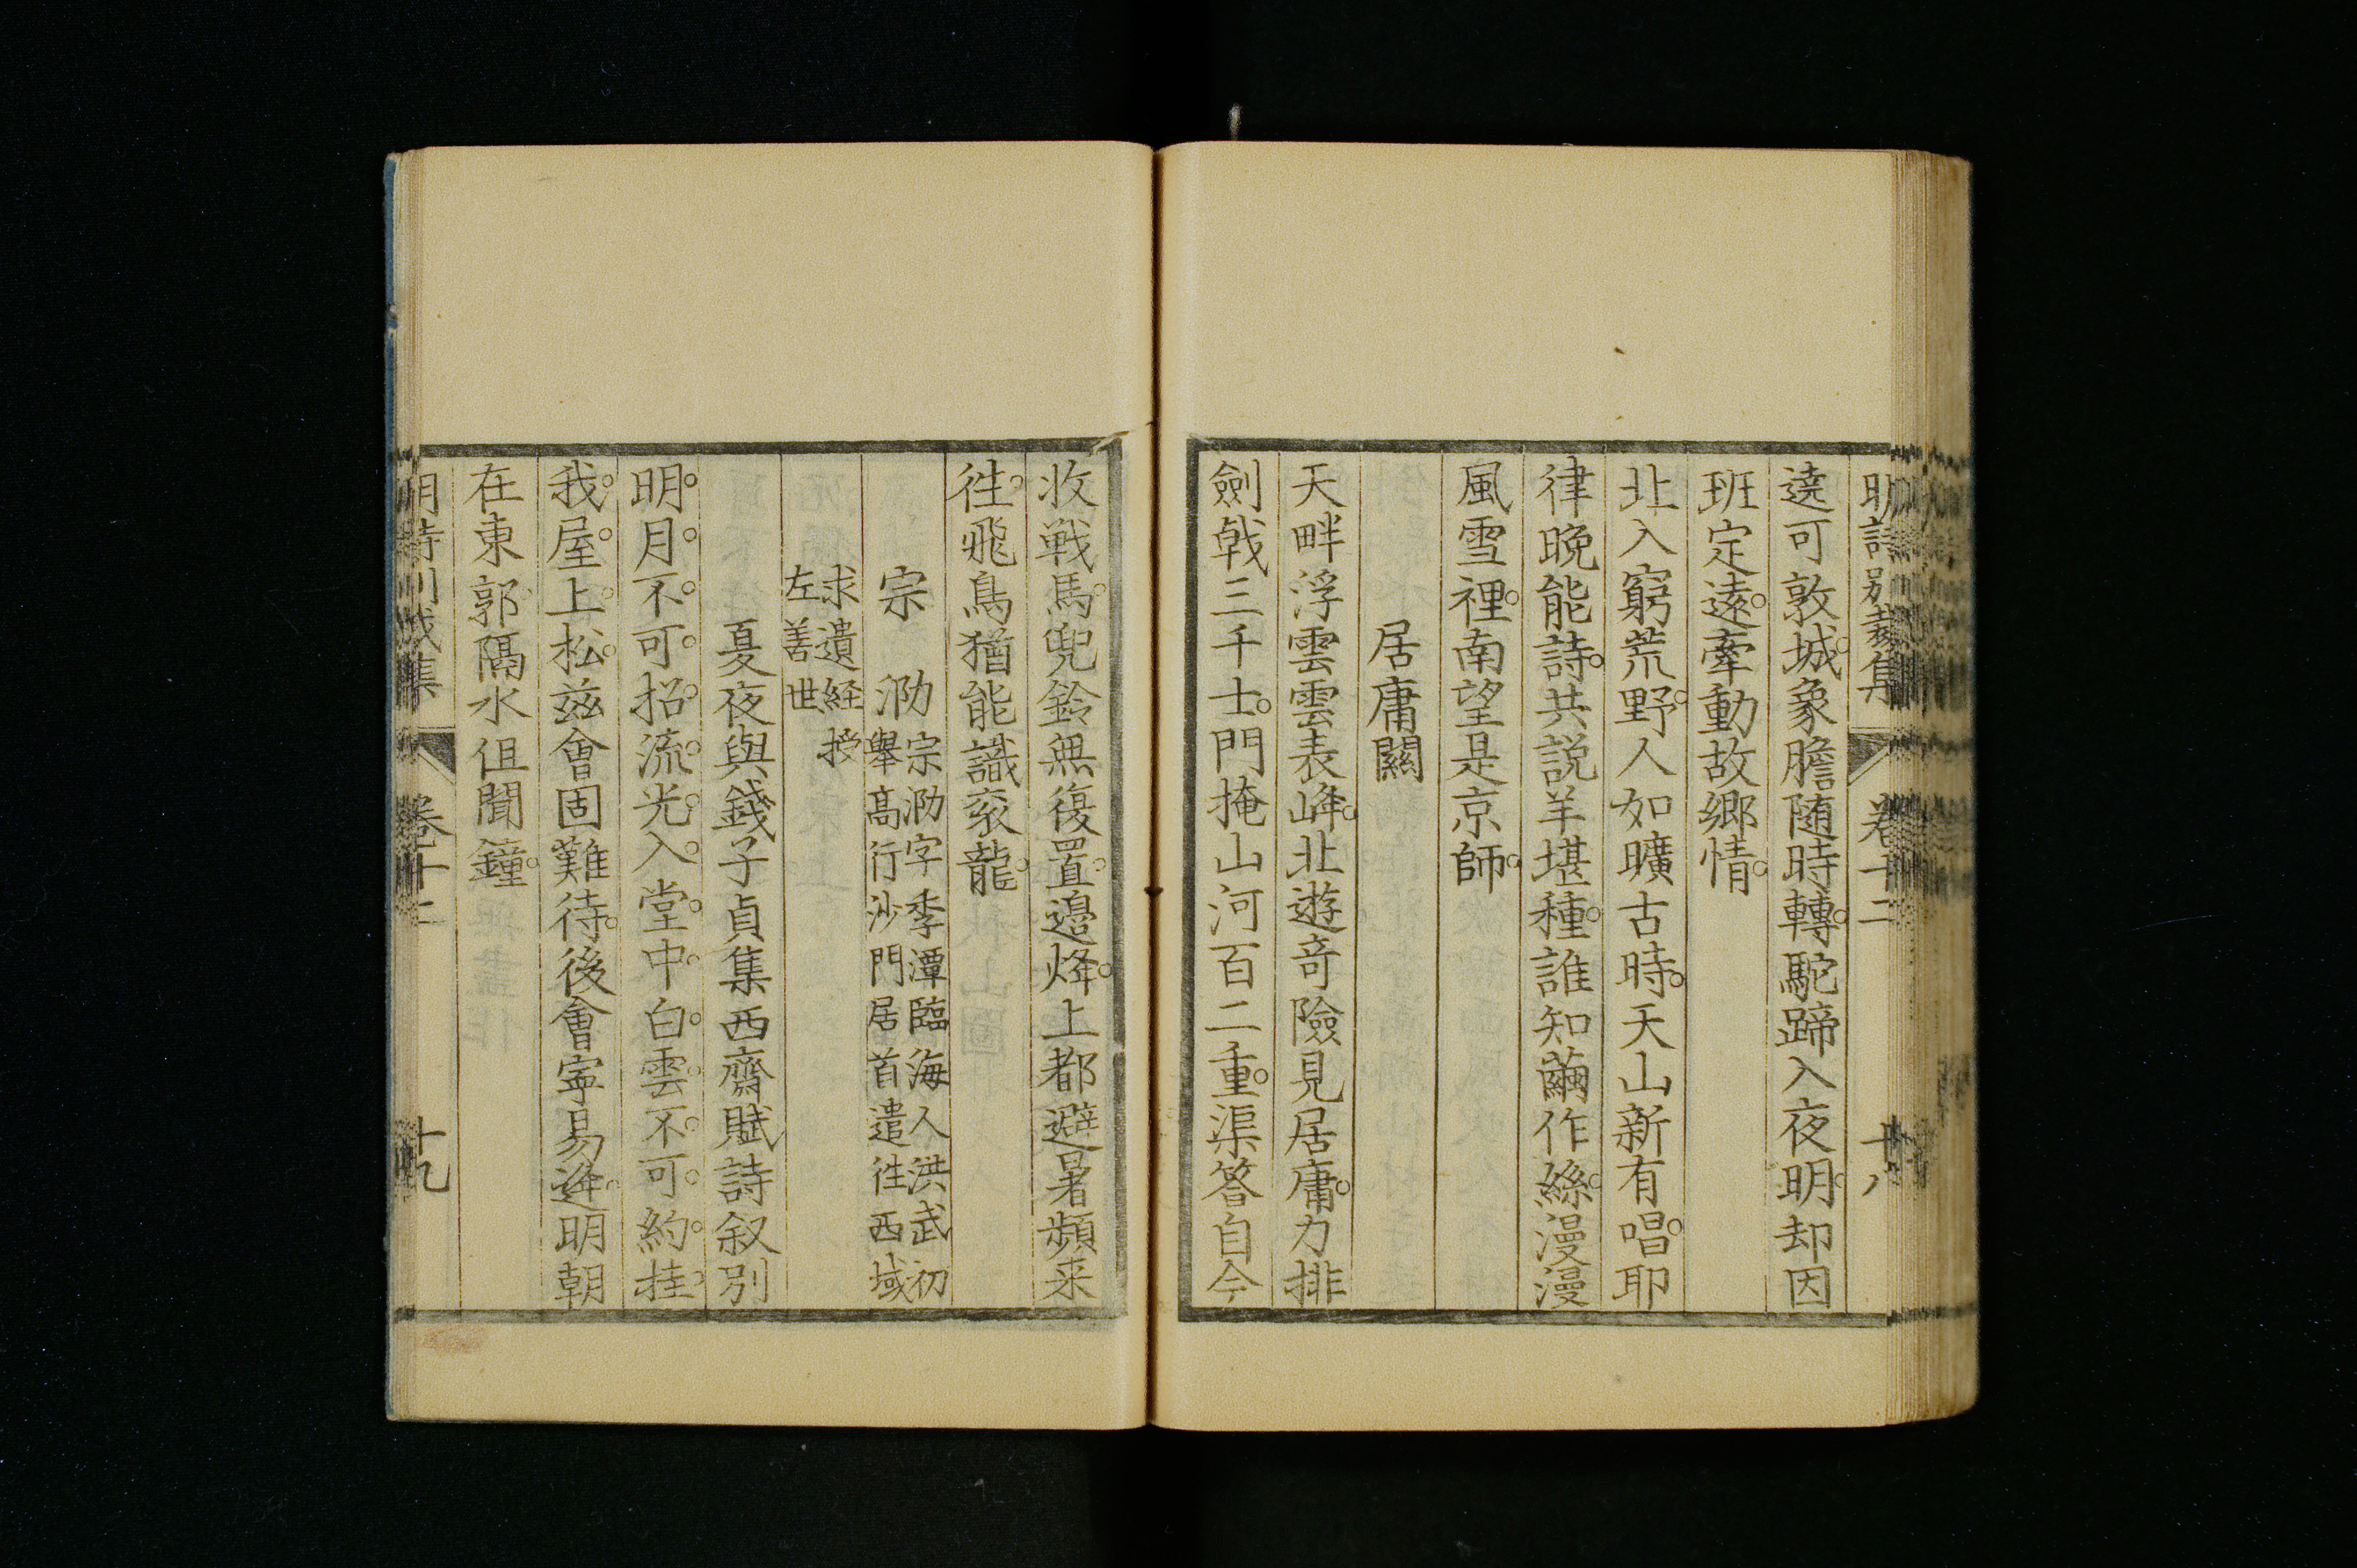 明詩別裁集 卷十二 十八
遶可敦城象膽随時轉駝蹄入夜明却因
班定遠牽動故鄉情
北入窮荒野人如曠古時天山新有唱耶
律晚能詩共説羊堪種誰知繭作絲漫漫
風雪裡南望是京師
居庸關
天畔浮雲雲表峰北遊奇險見居庸力排
劍戟三千士門掩山河百二重渠答自今
收戰馬兜鈴無復置邉烽上都避暑頻来
徃飛鳥猶能識衮龍
宗泐 宗泐字季潭臨海人洪武初
舉高行沙門居首遣徃西域
求遺経授
左善世
夏夜與錢子貞集西齋賦詩叙別
明月不可招流光入堂中白雲不可約挂
我屋上松兹會固難待後會寧易逢明朝
在東郭隔水但聞鐘
明詩別裁集 卷十二 十九